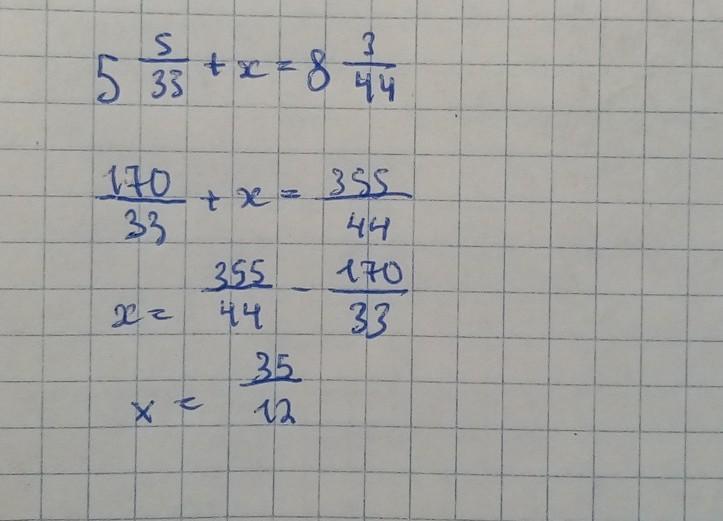 5 5/33 + x = 8 3/44
170/33 + x = 355/44
x = 355/44 - 170/33
x = 35/12